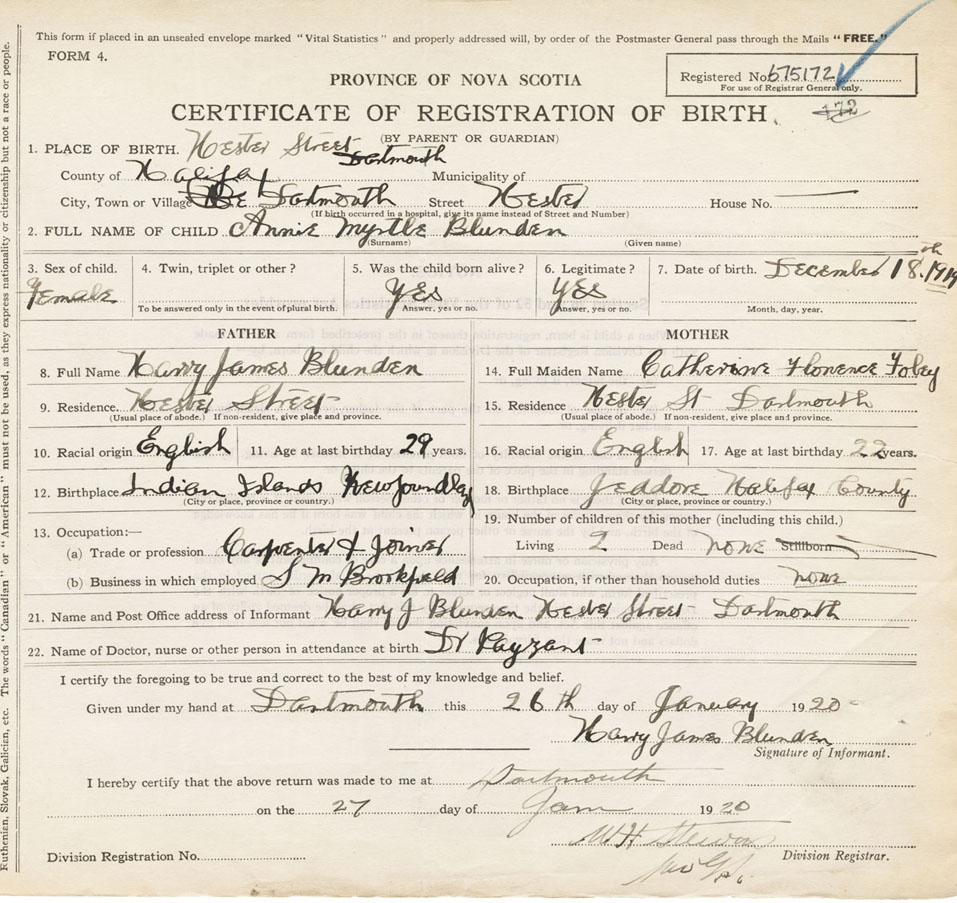 This form if placed in an unsealed envelope marked "Vital Statistics" and properly addressed will, by order of the Postmaster General pass through the Mails "FREE."
FORM 4.
Registered No. 675172
For use of Registrar General only.
172
PROVINCE OF NOVA SCOTIA
CERTIFICATE OF REGISTRATION OF BIRTH.
(BY PARENT OR GUARDIAN)
1. PLACE OF BIRTH. Hester Street Dartmouth
County of Halifax Municipality of
City, Town or Village Dartmouth Street Hester House No.
(If birth occurred in a hospital, give its name instead of Street and Number)
2. FULL NAME OF CHILD Annie Myrtle Blunden
(Surname) (Given name)
3. Sex of child. 4. Twin, triplet or other? 5. Was the child born alive? 6. Legitimate? 7. Date of birth. December 18th 1919
Female YES YES
To be answered only in the event of plural birth. Answer, yes or no. Answer, yes or no. Month, day, year.
FATHER MOTHER
8. Full Name Harry James Blunden 14. Full Maiden Name Catherine Florence
9. Residence. Hester Street 15. Residence Hester St Dartmouth
(Usual place of abode.) If non-resident, give place and province. (Usual place of abode.) If non-resident, give place and province.
10. Racial origin English 11. Age at last birthday 29 years. 16. Racial origin English 17. Age at last birthday 22 years.
12. Birthplace Indian Islands Newfoundland 18. Birthplace Jeddore Halifax County
(City or place, province or country.) (City or place, province or country.)
13. Occupation:— 19. Number of children of this mother (including this child.)
(a) Trade or profession Carpenter & Joiner Living 2 Dead none Stillborn
(b) Business in which employed S M Brookfield 20. Occupation, if other than household duties none
21. Name and Post Office address of Informant Harry J Blunden Hester Street Dartmouth
22. Name of Doctor, nurse or other person in attendance at birth Dr Payzant
I certify the foregoing to be true and correct to the best of my knowledge and belief.
Given under my hand at Dartmouth this 26th day of January 1920
Harry James Blunden
Signature of Informant.
I hereby certify that the above return was made to me at Dartmouth
on the 27 day of Jan 1920
Division Registration No. Division Registrar.
Ruthenian, Slovak, Galician, etc. The words "Canadian" or "American" must not be used, as they express nationality or citizenship but not a race or people.